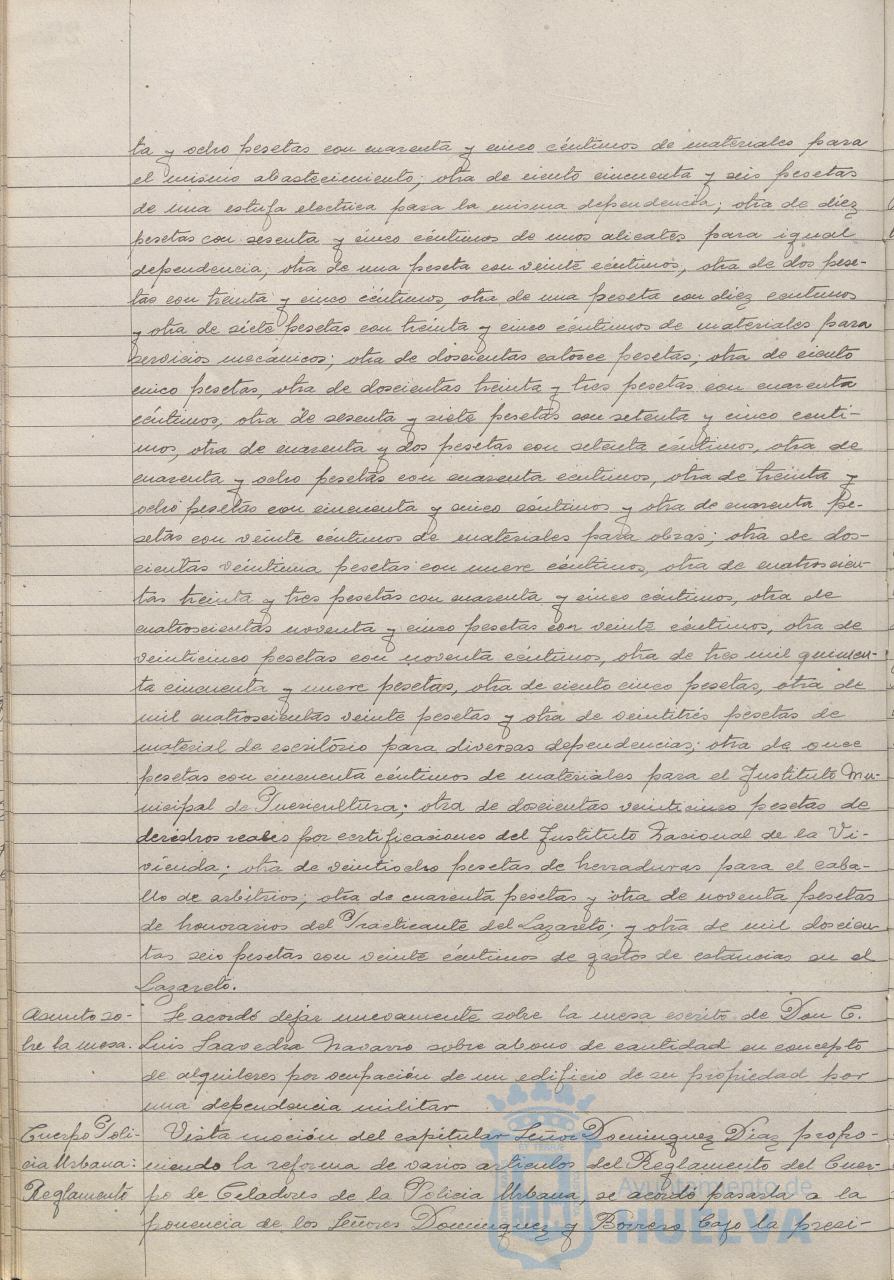 ta y ocho pesetas con cuarenta y cinco céntimos de materiales para
el mismo abastecimiento; otra de ciento cincuenta y seis pesetas
de una estufa electrica para la misma dependencia; otra de diez
pesetas con sesenta y cinco céntimos de unos alicates para igual
dependencia; otra de una peseta con veinte céntimos, otra de dos pese-
tas con treinta y cinco céntimos, otra de una peseta con diez centimos
y otra de siete pesetas con treinta y cinco céntimos de materiales para
servicios mecánicos; otra de doscientas catorce pesetas; otra de ciento
cinco pesetas, otra de doscientas treinta y tres pesetas con cuarenta
céntimos, otra de sesenta y siete pesetas con setenta y cinco centi-
mos, otra de cuarenta y dos pesetas con setenta céntimos, otra de
cuarenta y ocho pesetas con cuarenta céntimos, otra de treinta y
ocho pesetas con cincuenta y cinco céntimos y otra de cuarenta pe-
setas con veinte céntimos de materiales para obras; otra de dos-
cientas veintiuna pesetas con nueve céntimos, otra de cuatroscien-
tas treinta y tres pesetas con cuarenta y cinco céntimos, otra de
cuatroscientas noventa y cinco pesetas con veinte céntimos, otra de
veinticinco pesetas con noventa céntimos, otra de tres mil quinien-
ta cincuenta y nueve pesetas, otra de ciento cinco pesetas, otra de
mil cuatroscientas veinte pesetas y otra de veintitrés pesetas de
material de escritório para diversas dependencias; otra de once
pesetas con cincuenta céntimos de materiales para el Instituto Mu-
nicipal de Puericultura; otra de doscientas veinticinco pesetas de
derechos reales por certificaciones del Instituto Nacional de la Vi-
vienda; otra de veintiocho pesetas de herraduras para el caba-
llo de arbitrios; otra de cuarenta pesetas y otra de noventa pesetas
de honorarios del Practicante del Lazareto; y otra de mil doscien-
tas seis pesetas con veinte céntimos de gastos de estancias en el
Lazareto.
Asunto so-
bre la mesa.
Se acordó dejar nuevamente sobre la mesa escrito de Don C.
Luis Saavedra Navarro sobre abono de cantidad en concepto
de alquileres por ocupación de un edificio de su propiedad por
una dependencia militar
Cuerpo Poli-
cia Urbana:
Reglamento
Vista moción del capitular Señor Dominguez Diaz propo-
niendo la reforma de varios articulos del Reglamento del Cuer-
po de Celadores de la Policia Urbana se acordó pasarla a la
ponencia de los Señores Dominguez y Borrero bajo la presi-
Ayuntamiento de
HUELVA